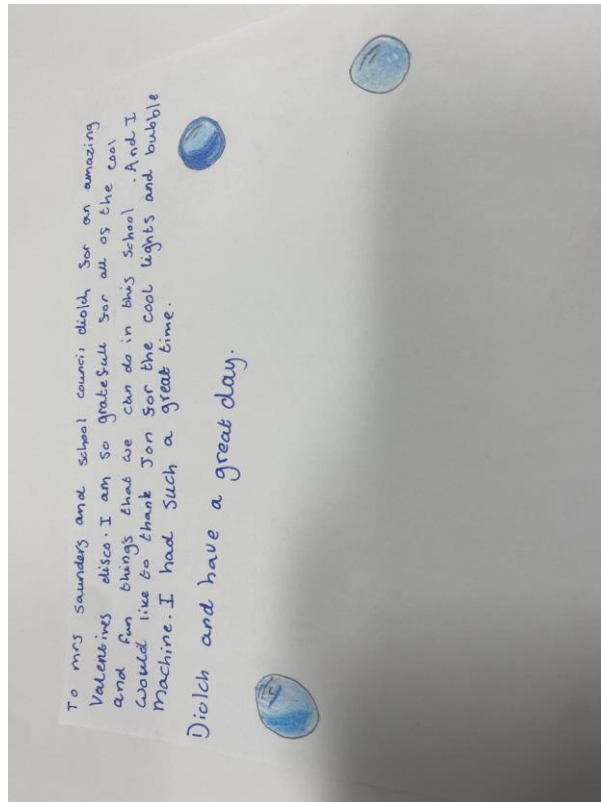 To mrs saunders and school council diolch for an amazing
Valentines disco. I am so gratefull for all of the cool
and fun things that we can do in this school . And I
would like to thank Jon for the cool lights and bubble
machine. I had such a great time.
Diolch and have a great day.